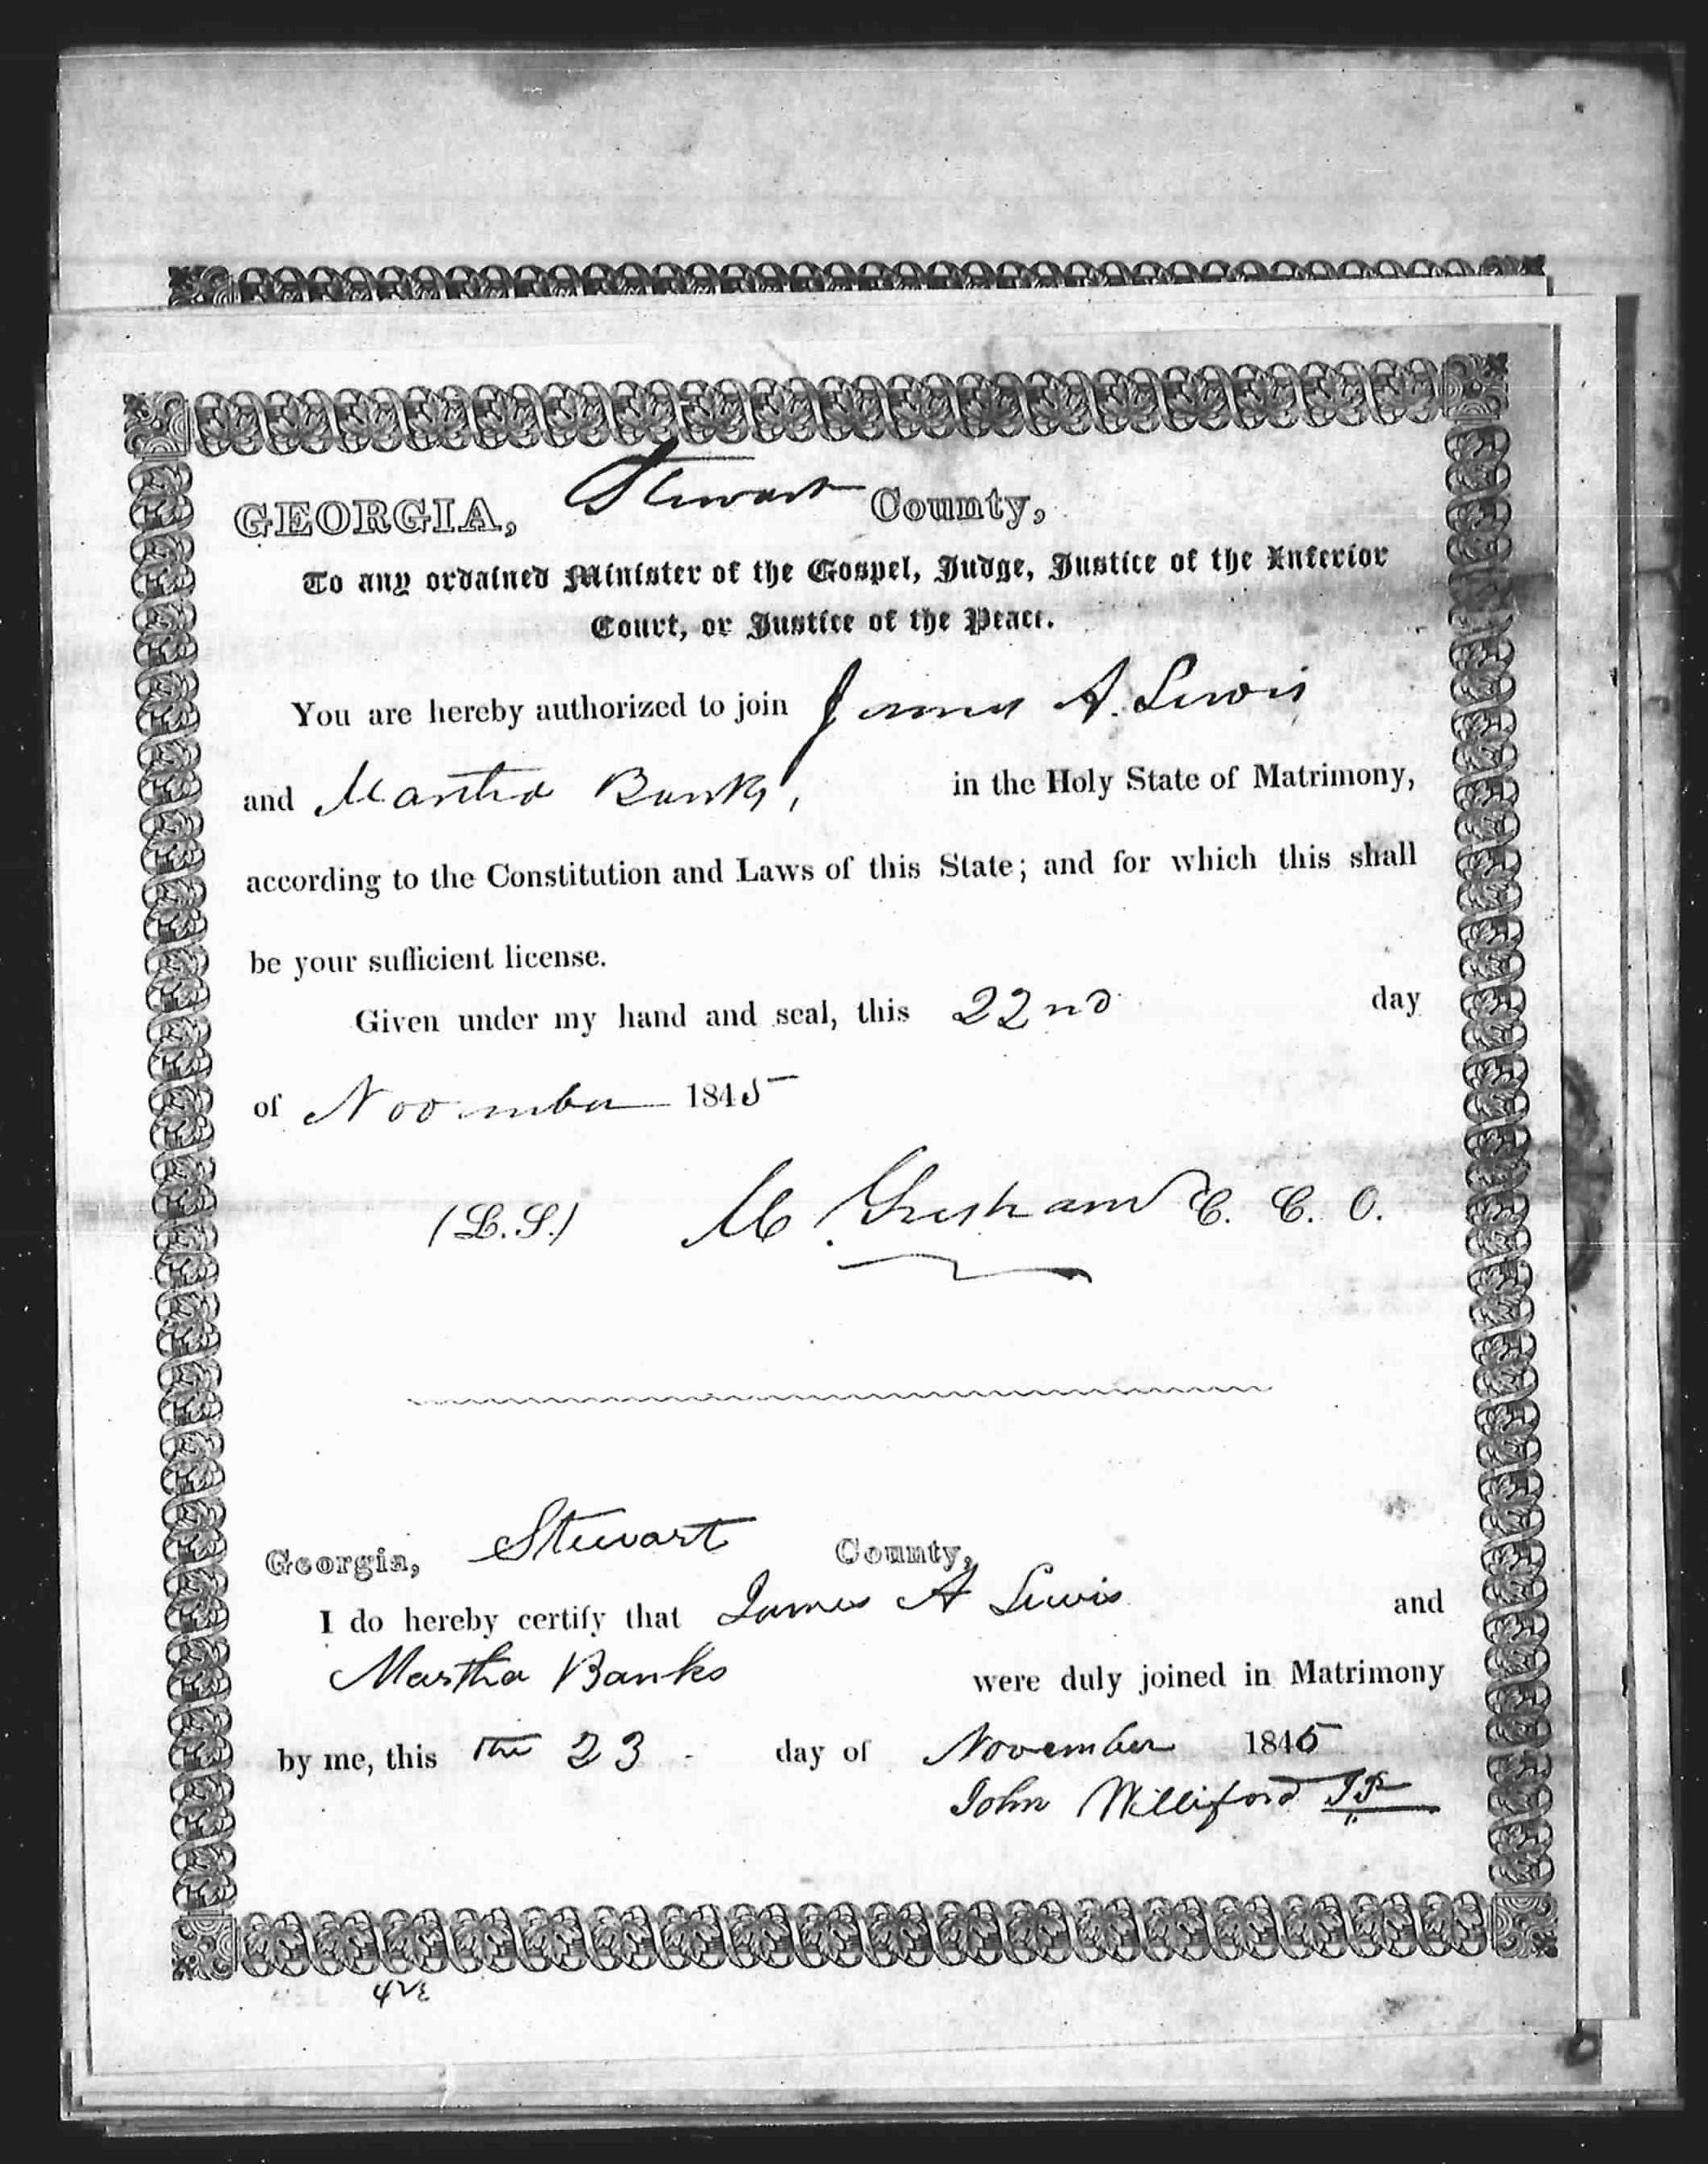 GEORGIA, Stewart County,
To any ordained Minister of the Gospel, Judge, Justice of the Inferior
Court, or Justice of the Peace.
You are hereby authorized to join James A. Lewis
and Martha Banks, in the Holy State of Matrimony,
according to the Constitution and Laws of this State; and for which this shall
be your sufficient license.
Given under my hand and seal, this 22nd day
of November 1845
(L.S.) M. Gresham C. C. O.
Georgia, Stewart County,
I do hereby certify that James A Lewis and
Martha Banks were duly joined in Matrimony
by me, this the 23 day of November 1845
John Williford JP